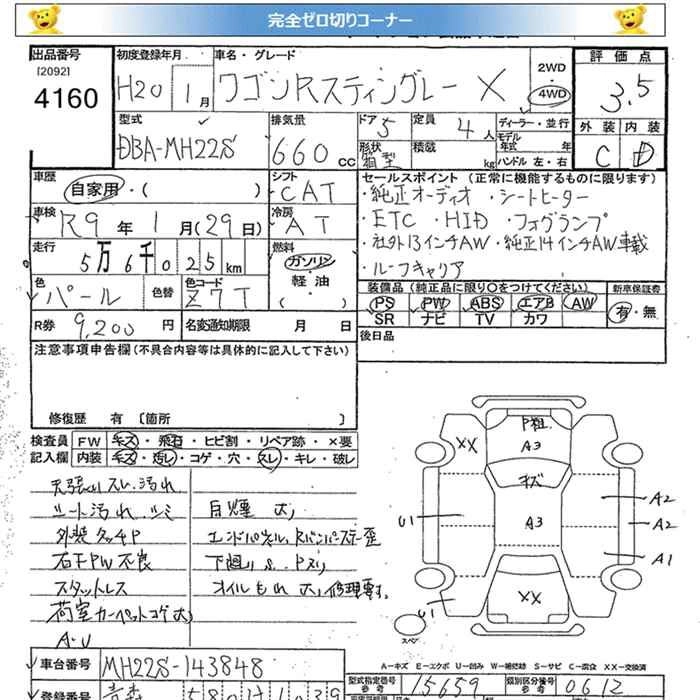 完全ゼロ切りコーナー
出品番号
[2092]
4160
初度登録年月
H20 1月
車名・グレード
ワゴンRスティングレー X
2WD
・
4WD
評価点
3.5
外装 内装
C D
型式
DBA-MH22S
排気量
660 CC
ドア 5
形状 箱型
定員 4人
積載 kg
ディーラー・並行
モデル年式 年
ハンドル 左・右
車歴
自家用・( )
シフト
CAT
車検
R9年1月(29日)
冷房
AT
走行
5万6千025km
燃料
ガソリン・
軽油・
( )
色
パール
色替
色コード
Z7T
R券 9,200円
名変通知期限 月 日
セールスポイント (正常に機能するものに限ります)
・純正オーディオ ・シートヒーター
・ETC ・HID ・フォグランプ
・社外13インチAW・純正14インチAW車載
・ルーフキャリア
装備品(純正品に限り○をつけてください) 新車保証書
PS PW ABS エアB AW 有・無
SR ナビ TV カワ
後日品
注意事項申告欄(不具合内容等は具体的に記入して下さい)
修復歴 有 〔箇所 〕
検査員 FW キズ・飛石・ヒビ割・リペア跡・×要
記入欄 内装 キズ・汚レ・コゲ・穴・スレ・キレ・破レ
天張りスレ、汚れ
シート汚れ、シミ
外装タッチP
右下PW不良
スタットレス
荷室カーペットコゲ穴
A・U
エンドパネル、Rバンパーステー歪
下廻りS、Pスリ
オイルもれ
XX
P粗
A3
キズ
A3
U1
A2
A2
A1
XX
U1
スペア
A-キズ E-エクボ U-凹み W-補修跡 S-サビ C-腐食 XX-交換済
車台番号 MH22S-143848
型式指定番号 参考 15659
類別区分番号 参考 0612
登録番号 青森 580